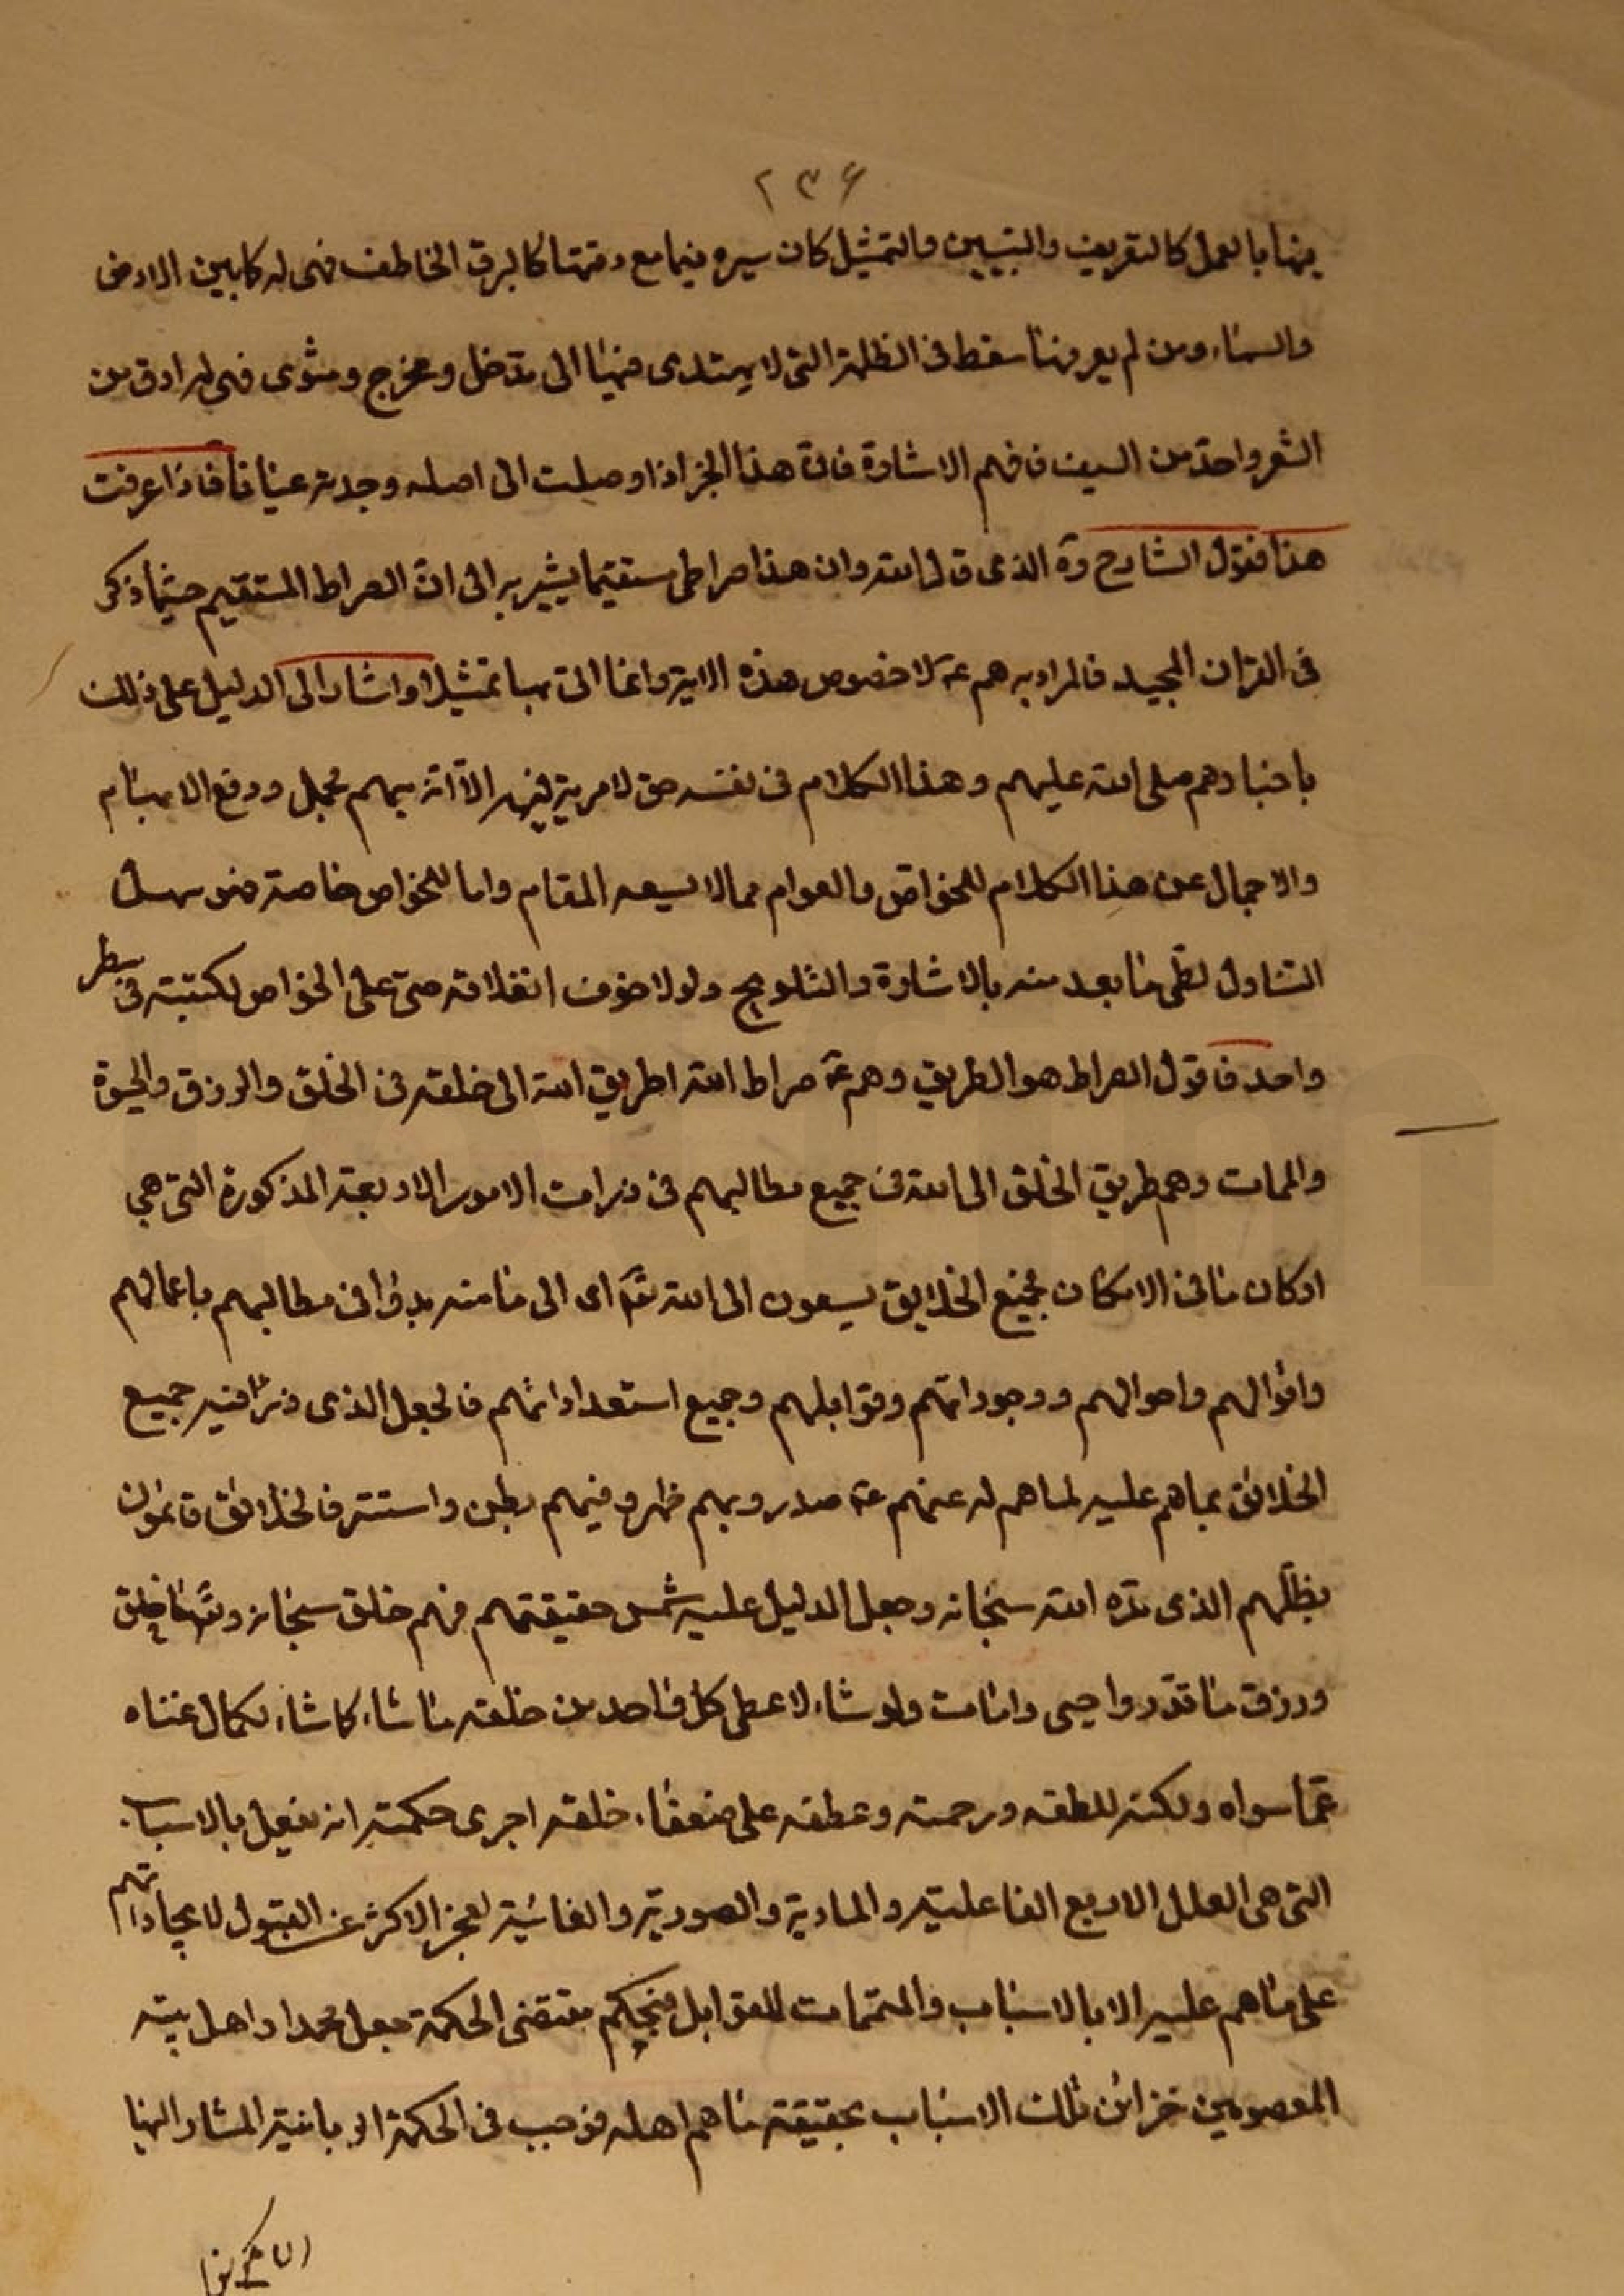 ٢٣۶
منها بالعمل كالتعريف والتبيين والتمثيل كان سيره فيها مع دقتها كالبرق الخاطف فهى له كما بين الارض
والسماء ومن لم يعرفها سقط فى الظلمة التى لا يهتدى فيها الى مدخل ومخرج ومثوى فهى له ادق من
الشعر واحدّ من السيف فافهم الاشارة فان هذا الجزء اذا وصلت الى اصله وجدته عيانا فاذا عرفت
هذا فقول الشارح ره الذى قال الله وان هذا صراطى مستقيما يشير به الى ان الصراط المستقيم حيثما ذكر
فى القران المجيد فالمراد به هم ع لا خصوص هذه الاية وانما اتى بها تمثيلا واشار الى الدليل على ذلك
باخبارهم صلى الله عليهم وهذا الكلام فى نفسه حق لا مرية فيه الا انه مبهم مجمل ورفع الابهام
والاجمال عن هذا الكلام للخواص والعوام مما لا يسعه المقام واما للخواص خاصة فهو سهل
التناول لطى ما بعد منه بالاشارة والتلويح ولولا خوف انغلاقه حتى على الخواص لكتبته فى سطر
واحد فاقول الصراط هو الطريق وهم ع صراط الله اى طريق الله الى خلقه فى الخلق والرزق والحيوة
والممات وهم طريق الخلق الى الله فى جميع مطالبهم فى ذرات الامور الاربعة المذكورة التى هى
اركان ما فى الامكان فجميع الخلايق يسعون الى الله تعالى اى الى ما منه بدؤا فى مطالبهم باعمالهم
واقوالهم واحوالهم ووجوداتهم وقوابلهم وجميع استعداداتهم فالجعل الذى ذرأ فيه جميع
الخلائق بما هم عليه لما هم له عنهم ع صدر وبهم ظهر وفيهم بطن واستتر فالخلائق قائمون
بظلهم الذى مده الله سبحانه وجعل الدليل عليه شمس حقيقتهم فبهم خلق سبحانه وبهم ما خلق
ورزق ما قدر واحيى وامات ولو شاء لاعطى كل واحد من خلقه ما شاء كما شاء لكمال غناه
عما سواه ولكنه للطفه ورحمته وعطفه على ضعفاء خلقه اجرى حكمته انه يفعل بالاسباب
التى هى العلل الاربع الفاعلية والمادية والصورية والغائية لعجز الاكثر عن القبول لايجاداتهم
على ما هم عليه الا بالاسباب والمتممات للقوابل فبحكم مقتضى الحكمة جعل محمدا واهل بيته
المعصومين خزائن تلك الاسباب بحقيقة ما هم اهله فوجب فى الحكمة الربانية المشار اليها